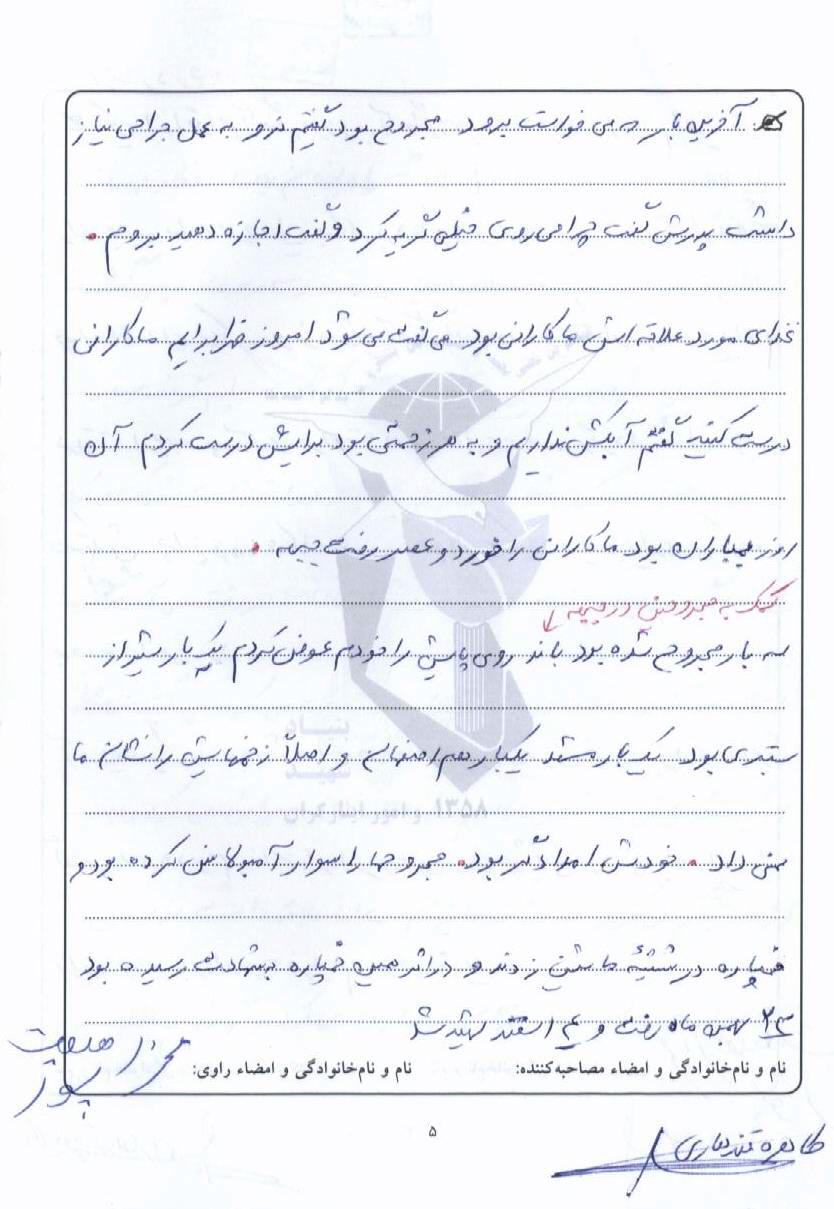 آخرین بار که می خواست برود مجروح بود گفتیم نرو به عمل جراحی نیاز
داشت پدرش گفت چرا می روی خیلی گریه کرد و گفت اجازه دهید بروم .
غذای مورد علاقه اش ماکارانی بود می گفت می شود امروز ظهر برایم ماکارانی
درست کنید گفتم آبکش نداریم و به هر زحمتی بود برایش درست کردم آن
روز بمباران بود ماکارانی را خورد و عصر رفت جبهه .
کمک به مجروحین در جبهه
سه بار مجروح شده بود باند روی پایش را خودم عوض کردم یک بار شیراز
بستری بود یک بار مشهد یکبار هم اصفهان و اصلاً زخمهایش را نشان ما
نمی داد . خودش امدادگر بود . مجروحها را سوار آمبولانس کرده بود و
خمپاره در شیشه ماشین زدند و در اثر همین خمپاره بشهادت رسیده بود
۲۳ بهمن ماه رفت و ۴ اسفند شهید شد
نام و نام‌خانوادگی و امضاء مصاحبه‌کننده: نام و نام‌خانوادگی و امضاء راوی:
۵
طاهره قندهاری
بنیاد
شهید
و امور ایثارگران ۱۳۵۸